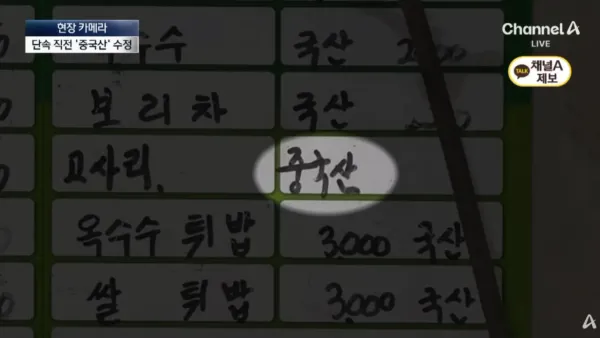 현장 카메라
단속 직전 '중국산' 수정
Channel A
LIVE
TALK 채널A
제보
국산
보리차 국산
고사리. 중국산
옥수수 튀밥 3.000 국산
쌀 튀밥 3.000 국산